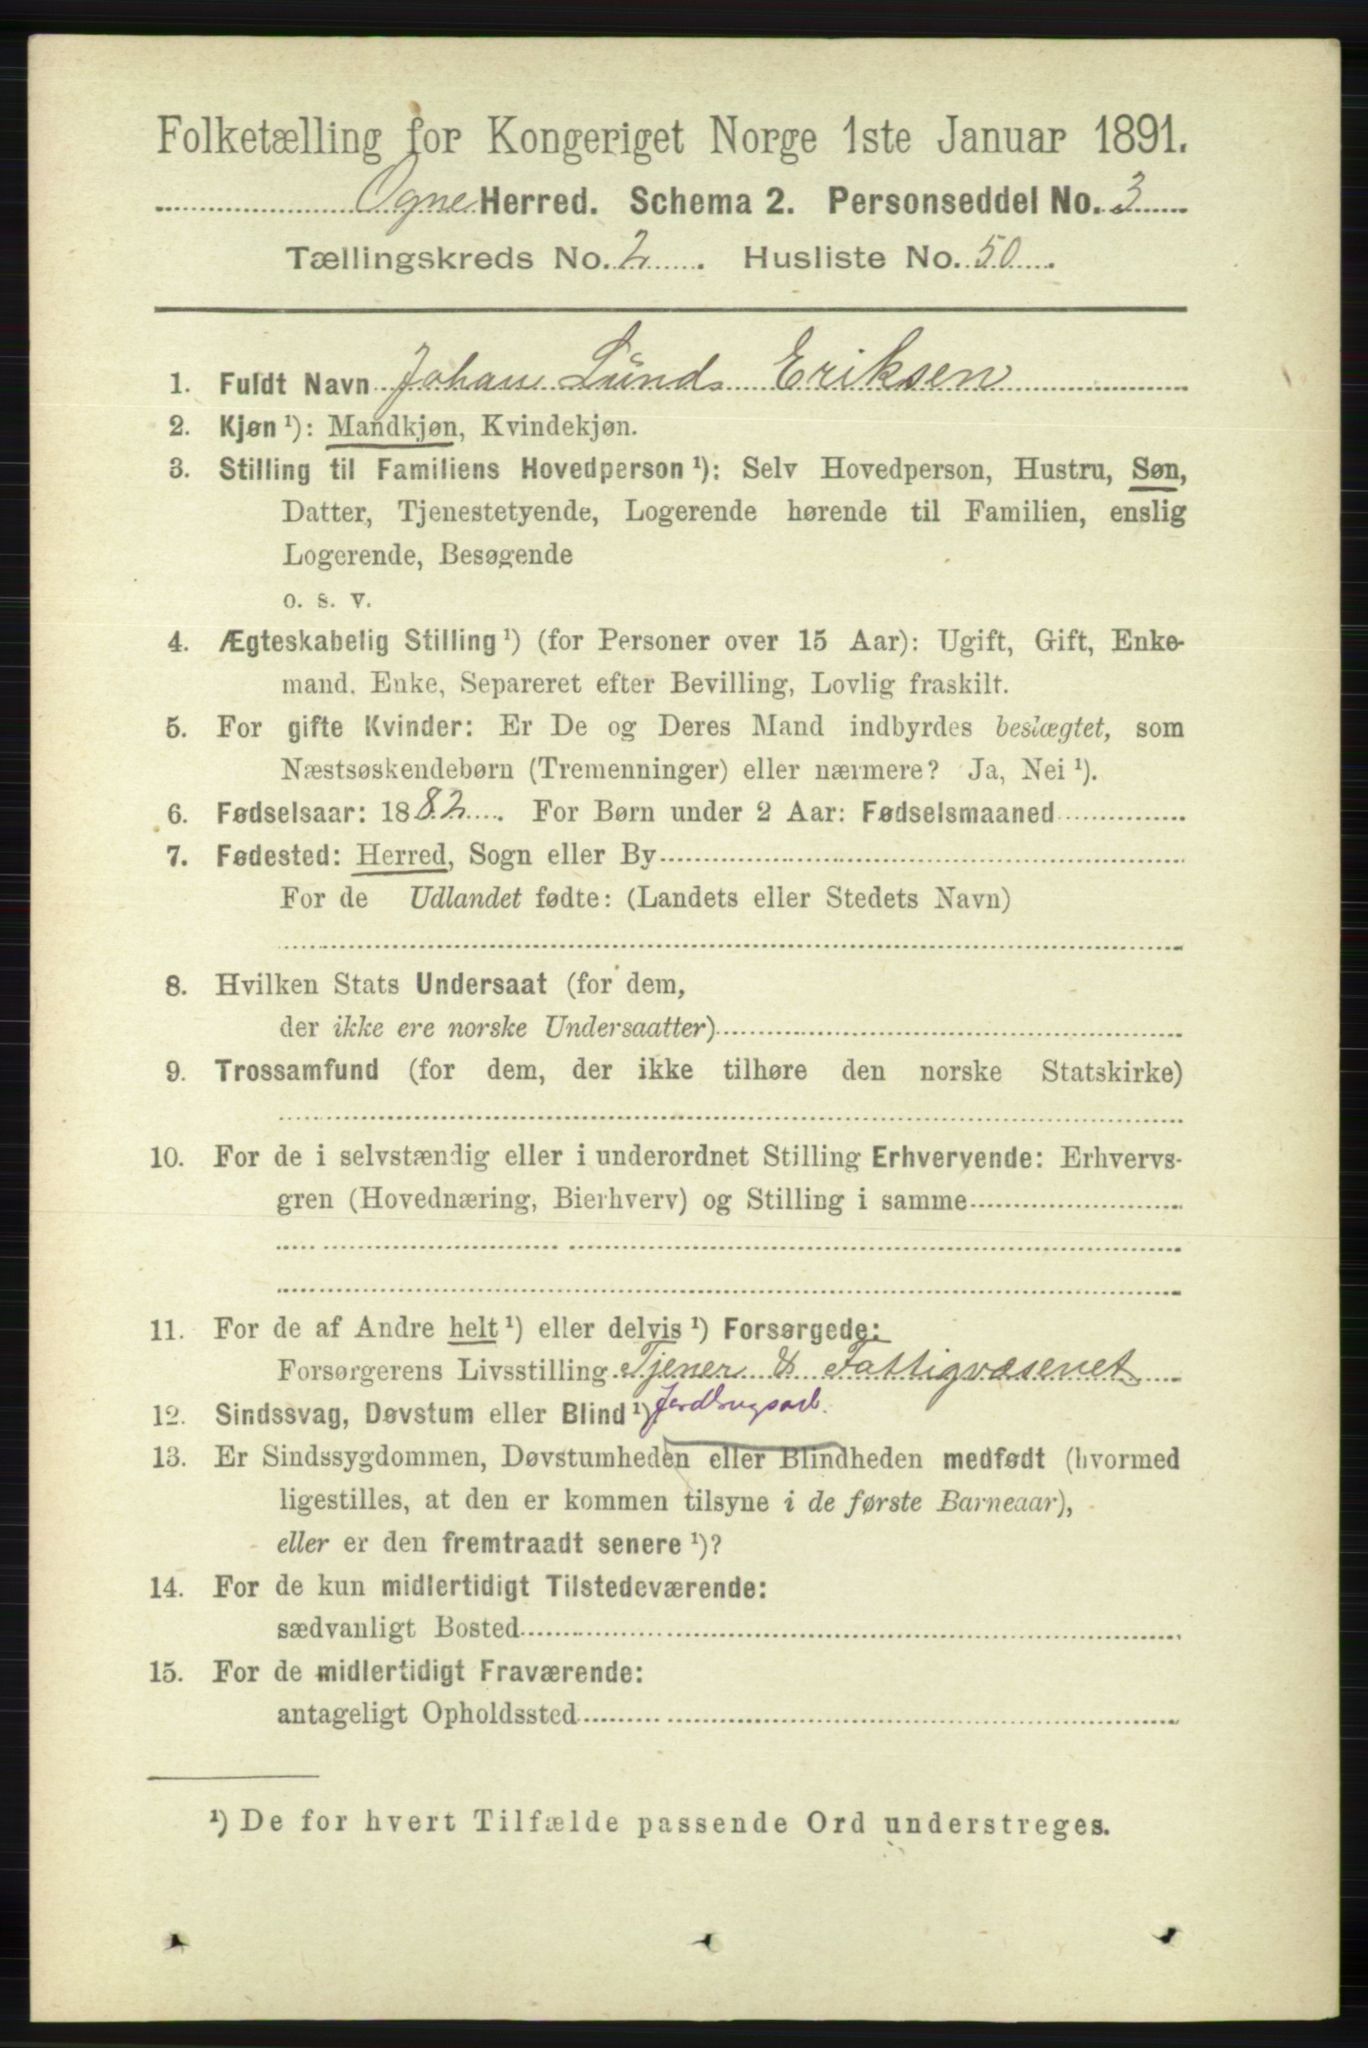 Folketælling for Kongeriget Norge 1ste Januar 1891.
Ogne Herred. Schema 2. Personseddel No. 3
Tællingskreds No. 2. Husliste No. 50.
1. Fuldt Navn Johan Lund Eriksen
2. Kjøn ¹): Mandkjøn, Kvindekjøn.
3. Stilling til Familiens Hovedperson ¹): Selv Hovedperson, Hustru, Søn,
Datter, Tjenestetyende, Logerende hørende til Familien, enslig
Logerende, Besøgende
o. s. v.
4. Ægteskabelig Stilling ¹) (for Personer over 15 Aar): Ugift, Gift, Enke-
mand, Enke, Separeret efter Bevilling, Lovlig fraskilt.
5. For gifte Kvinder: Er De og Deres Mand indbyrdes beslægtet, som
Næstsøskendebørn (Tremenninger) eller nærmere? Ja, Nei ¹).
6. Fødselsaar: 1882. For Børn under 2 Aar: Fødselsmaaned
7. Fødested: Herred, Sogn eller By
For de Udlandet fødte: (Landets eller Stedets Navn)
8. Hvilken Stats Undersaat (for dem,
der ikke ere norske Undersaatter)
9. Trossamfund (for dem, der ikke tilhøre den norske Statskirke)
10. For de i selvstændig eller i underordnet Stilling Erhvervende: Erhvervs-
gren (Hovednæring, Bierhverv) og Stilling i samme
11. For de af Andre helt ¹) eller delvis ¹) Forsørgede:
Forsørgerens Livsstilling Tjener & Fattigvæsenet
12. Sindssvag, Døvstum eller Blind ¹) Jordbrugsarb.
13. Er Sindssygdommen, Døvstumheden eller Blindheden medfødt (hvormed
ligestilles, at den er kommen tilsyne i de første Barneaar),
eller er den fremtraadt senere ¹)?
14. For de kun midlertidigt Tilstedeværende:
sædvanligt Bosted
15. For de midlertidigt Fraværende:
antageligt Opholdssted
¹) De for hvert Tilfælde passende Ord understreges.